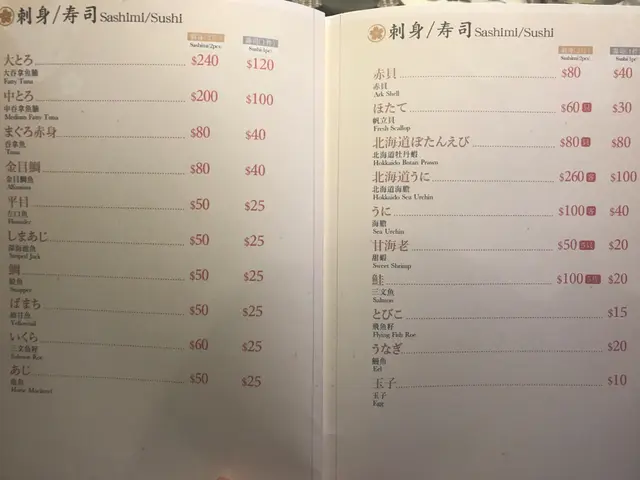 刺身/寿司 Sashimi/Sushi
Sashimi(2pcs)
大とろ $240 $120
大吞拿魚腩
Fatty Tuna
中とろ $200 $100
中吞拿魚腩
Medium Fatty Tuna
まぐろ赤身 $80 $40
吞拿魚
Tuna
金目鯛 $80 $40
金目鯛魚
Alfonsino
平目 $50 $25
左口魚
Flounder
しまあじ $50 $25
深海池魚
Striped Jack
鯛 $50 $25
鯛魚
Snapper
はまち $50 $25
油甘魚
Yellowtail
いくら $60 $25
三文魚籽
Salmon Roe
あじ $50 $25
池魚
Horse Mackerel
刺身/寿司 Sashimi/Sushi
Sashimi(2pcs)
赤貝 $80 $40
赤貝
Ark Shell
ほたて $60 $30
帆立貝
Fresh Scallop
北海道ぼたんえび $80 $80
北海道牡丹蝦
Hokkaido Botan Prawn
北海道うに $260 $100
北海道海膽
Hokkaido Sea Urchin
うに $100 $40
海膽
Sea Urchin
甘海老 $50 $20
甜蝦
Sweet Shrimp
鮭 $100 $20
三文魚
Salmon
とびこ $15
飛魚籽
Flying Fish Roe
うなぎ $20
鰻魚
Eel
玉子 $10
玉子
Egg